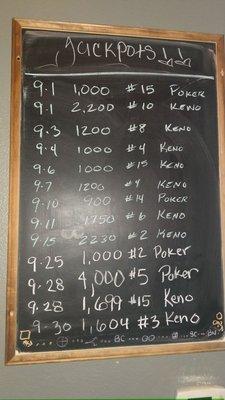 Jackpots!!
9.1 1,000 #15 Poker
9.1 2,200 #10 Keno
9.3 1200 #8 Keno
9.4 1000 #4 Keno
9.6 1000 #15 Keno
9.7 1200 #4 Keno
9.10 900 #14 Poker
9.11 1750 #6 Keno
9.15 2230 #2 Keno
9.25 1,000 #2 Poker
9.28 4,000 #5 Poker
9.28 1,699 #15 Keno
9-30 1,604 #3 Keno